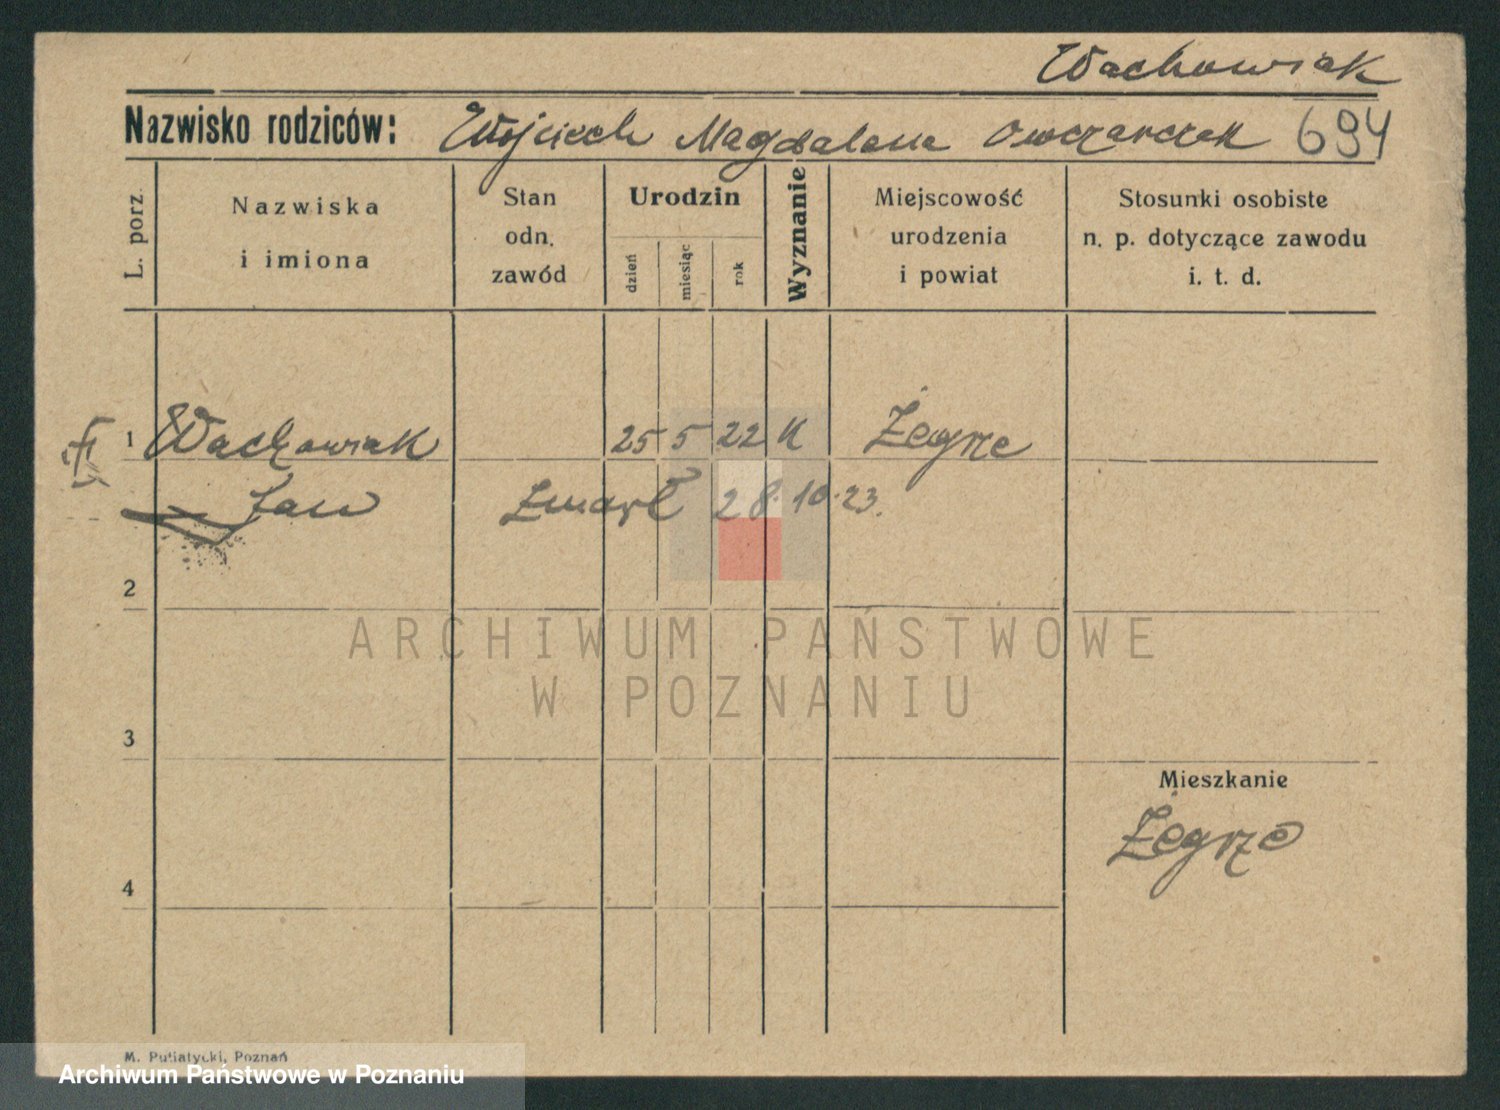 Wachowiak
Nazwisko rodziców: Wojciech Magdalena Owczarczak 694
L. porz.
Nazwiska
i imiona
Stan
odn.
zawód
Urodzin
dzień
miesiąc
rok
Wyznanie
Miejscowość
urodzenia
i powiat
Stosunki osobiste
n. p. dotyczące zawodu
i. t. d.
1 Wachowiak 25 5 22 K Żegrze
Jan Zmarł 28.10.23.
2
ARCHIWUM PAŃSTWOWE
W POZNANIU
3
Mieszkanie
Żegrze
4
M. Putiatycki, Poznań
Archiwum Państwowe w Poznaniu